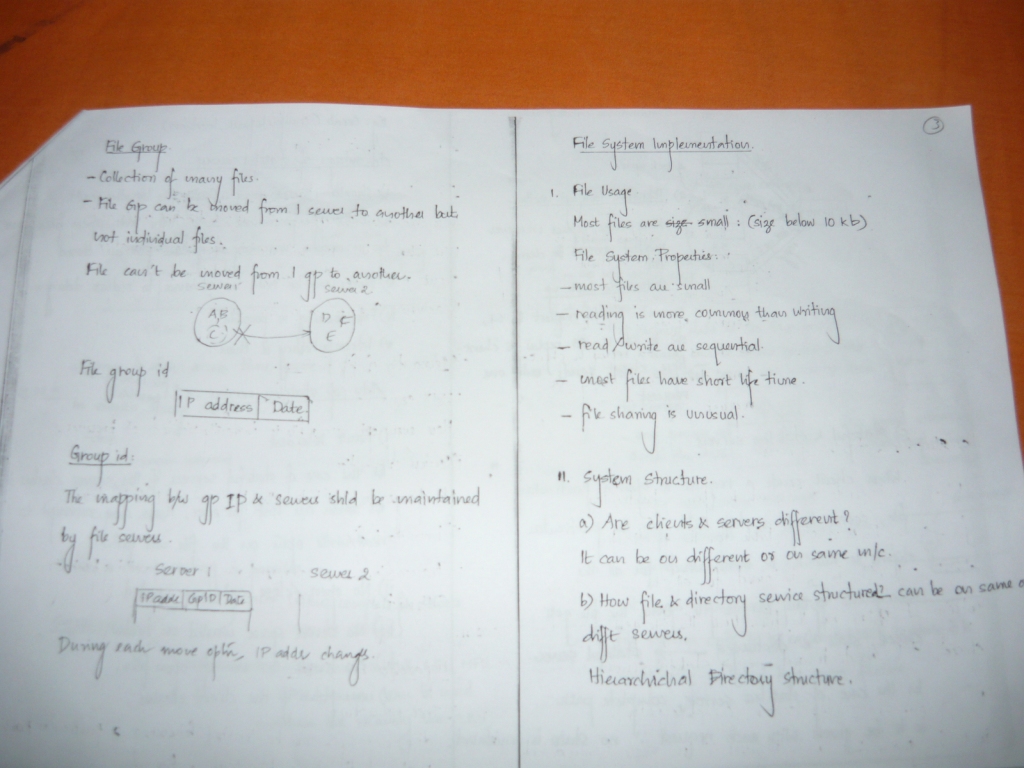 File Group
- Collection of many files.
- File Gp can be moved from 1 server to another but
not individual files.
File can't be moved from 1 gp to another.
server 1 server 2
A, B D F
C E
File group id
IP address Date
Group id:
The mapping b/w gp IP & servers shld be maintained
by file servers.
Server 1 server 2
IP addr GpID Date
During each move optn, IP addr changs.
3
File System Implementation.
I. File Usage
Most files are size small : (size below 10 kb)
File System Properties:
- most files are small
- reading is more common than writing
- read / write are sequential.
- most files have short life time.
- file sharing is unusual.
II. System Structure.
a) Are clients & servers different?
It can be on different or on same m/c.
b) How file & directory service structured? can be on same o
difft servers.
Hierarchichal Directory structure.